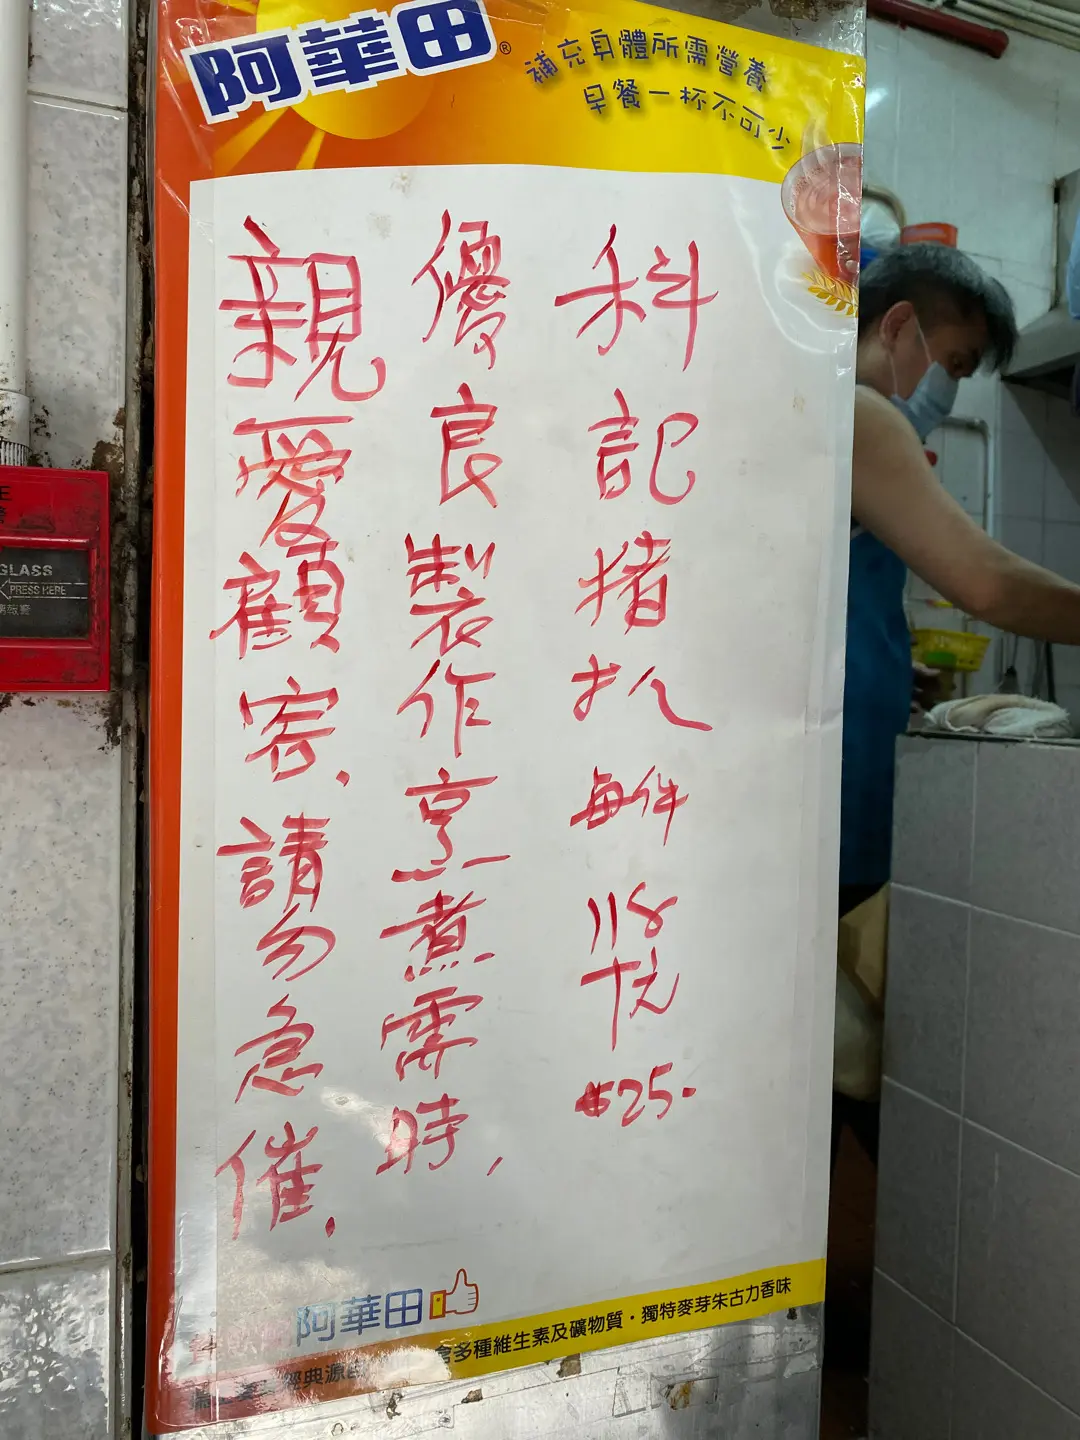 阿華田®
補充身體所需營養
早餐一杯不可少
科記豬扒每件
$25.
優良製作烹煮需時,
親愛顧客,請勿急催.
阿華田
含多種維生素及礦物質・獨特麥芽朱古力香味
經典源自
GLASS
PRESS HERE